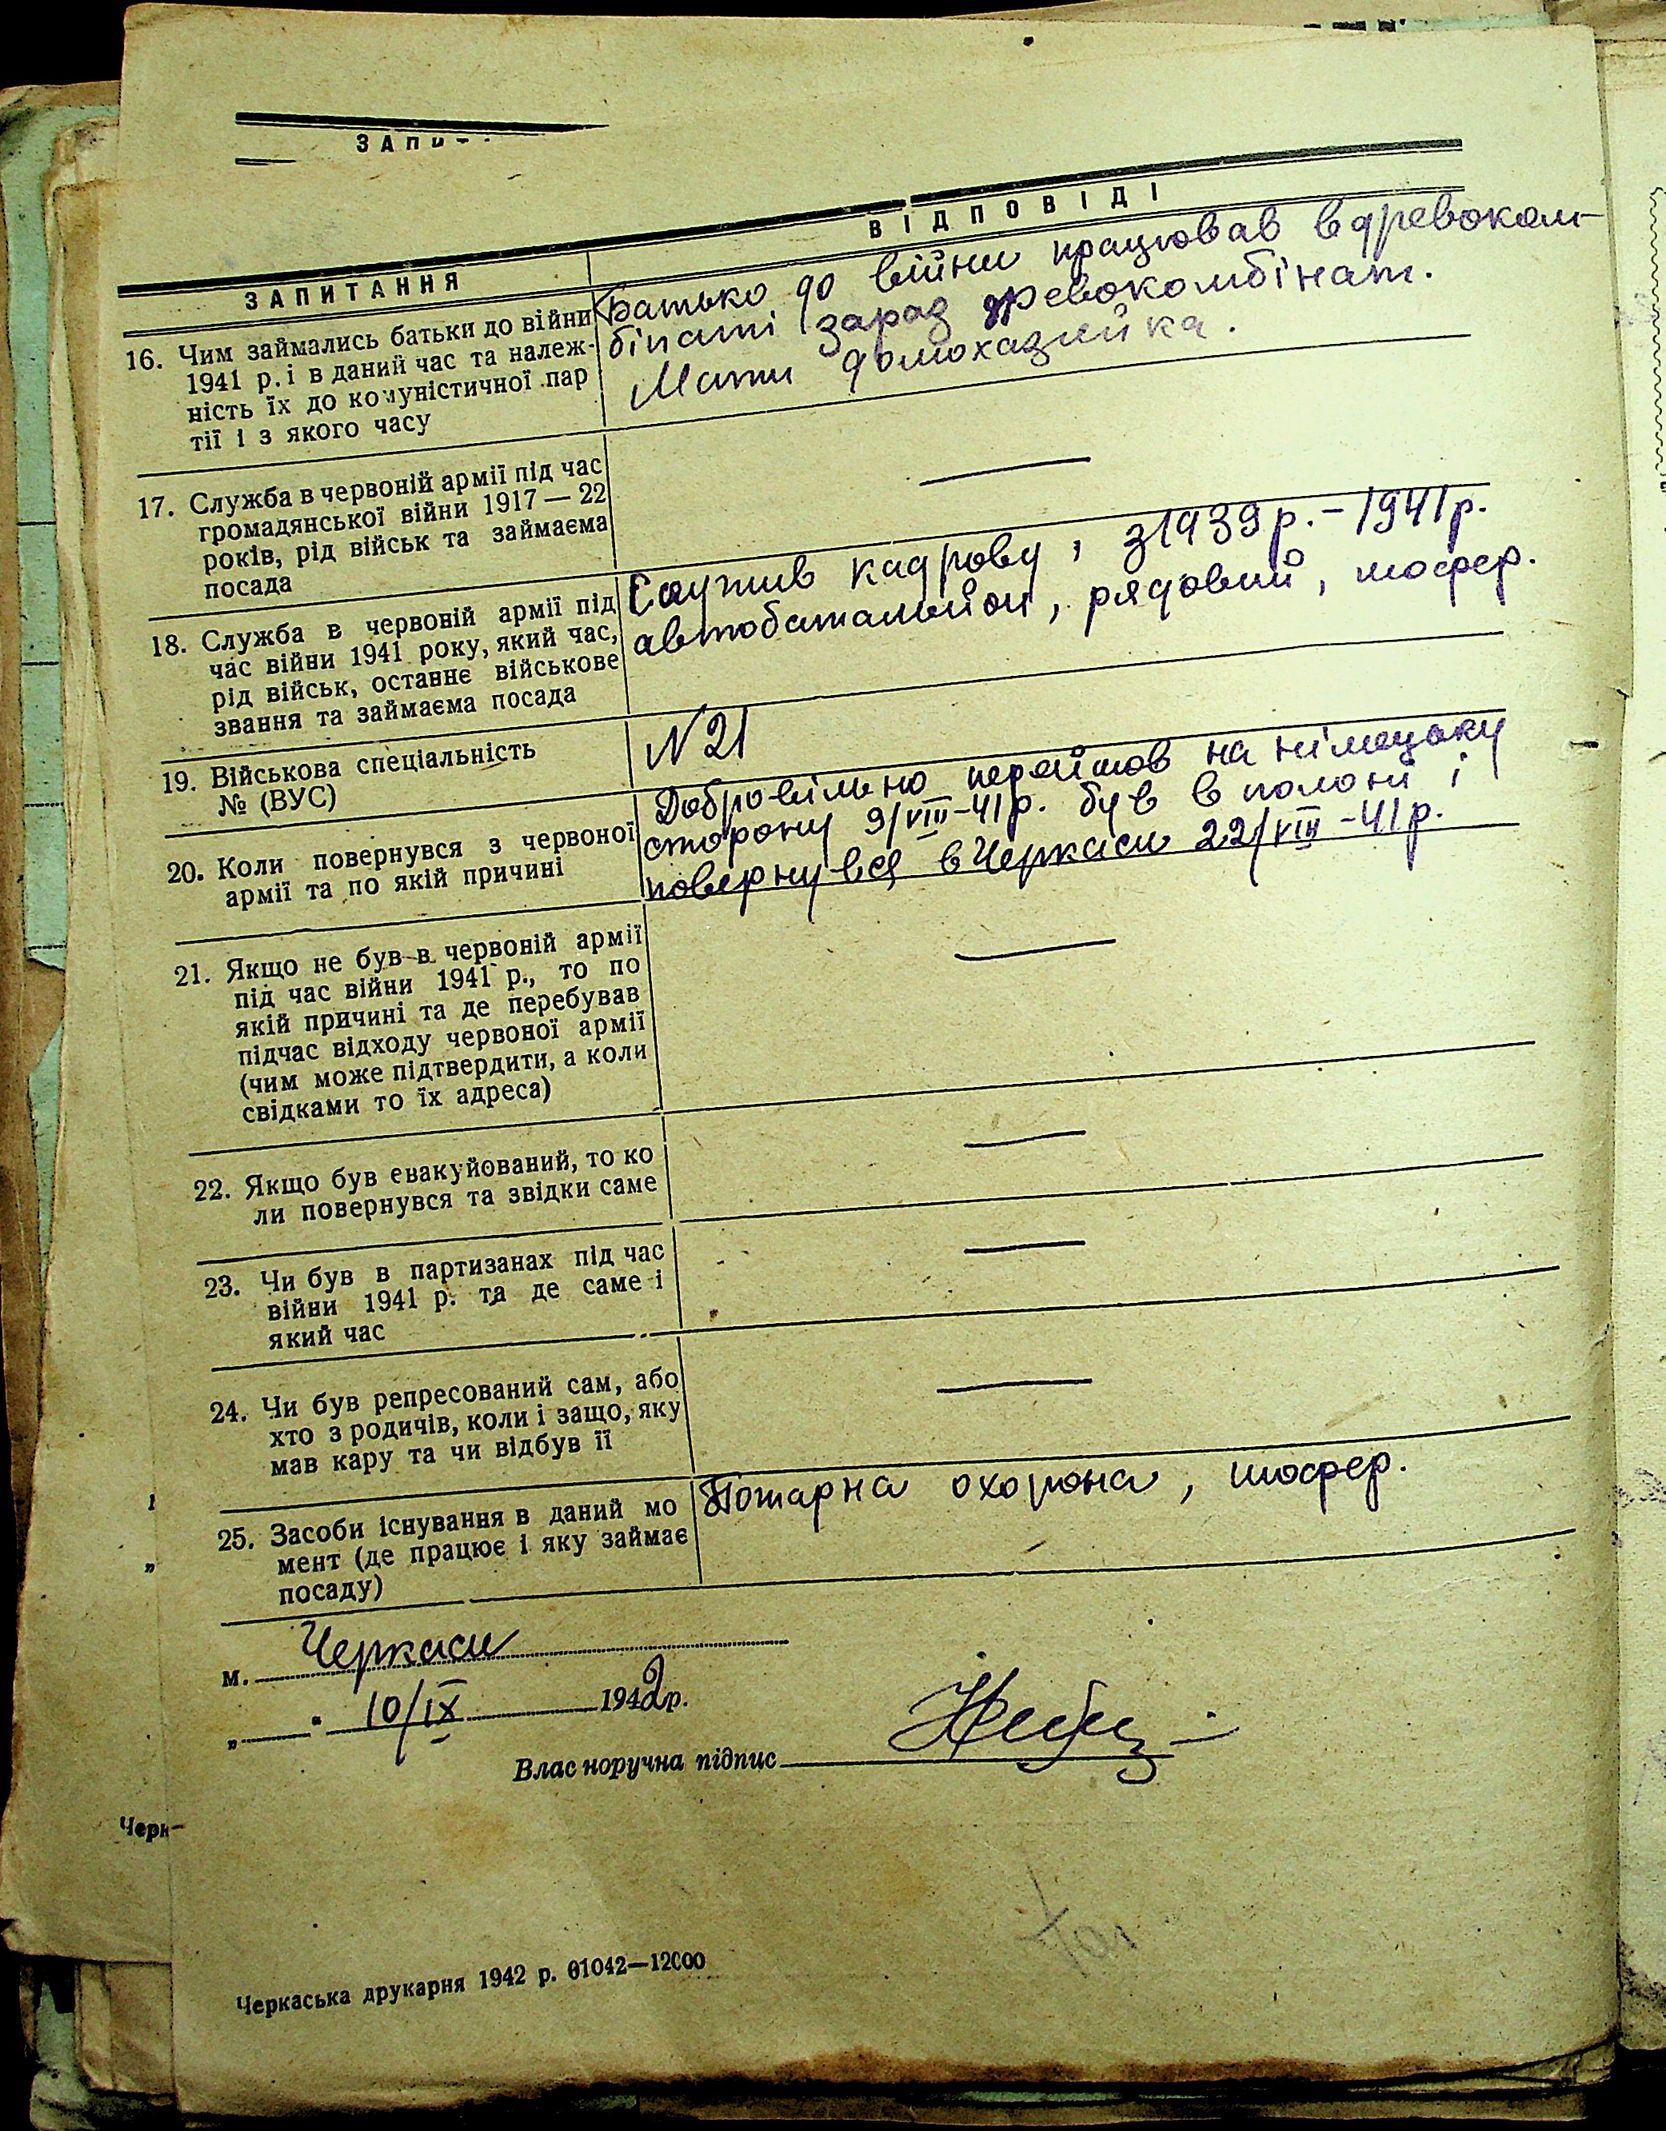 ЗАПИТАННЯ
ВІДПОВІДІ
16. Чим займались батьки до війни
1941 р. і в даний час та належ-
ність їх до комуністичної пар
тії і з якого часу
Батько до війни працював в древоком-
бінаті зараз древокомбінат.
Мати домохазяйка.
17. Служба в червоній армії під час
громадянської війни 1917 — 22
років, рід військ та займаєма
посада
—
18. Служба в червоній армії під
час війни 1941 року, який час,
рід військ, останнє військове
звання та займаєма посада
Служив кадрову, з 1939 р. – 1941 р.
автобатальйон, рядовий, шофер.
19. Військова спеціальність
№ (ВУС)
N 21
20. Коли повернувся з червоної
армії та по якій причині
Добровільно перейшов на німецьку
сторону 9/VIII-41 р. був в полоні і
повернувся в Черкаси 22/VIII-41 р.
21. Якщо не був в червоній армії
під час війни 1941 р., то по
якій причині та де перебував
підчас відходу червоної армії
(чим може підтвердити, а коли
свідками то їх адреса)
—
22. Якщо був евакуйований, то ко
ли повернувся та звідки саме
—
23. Чи був в партизанах під час
війни 1941 р. та де саме і
який час
—
24. Чи був репресований сам, або
хто з родичів, коли і защо, яку
мав кару та чи відбув її
—
25. Засоби існування в даний мо
мент (де працює і яку займає
посаду)
Пожарна охорона, шофер.
м. Черкаси
„ " 10/IX 1942 р.
Влас норучна підпис
Черкаська друкарня 1942 р. 01042—12000